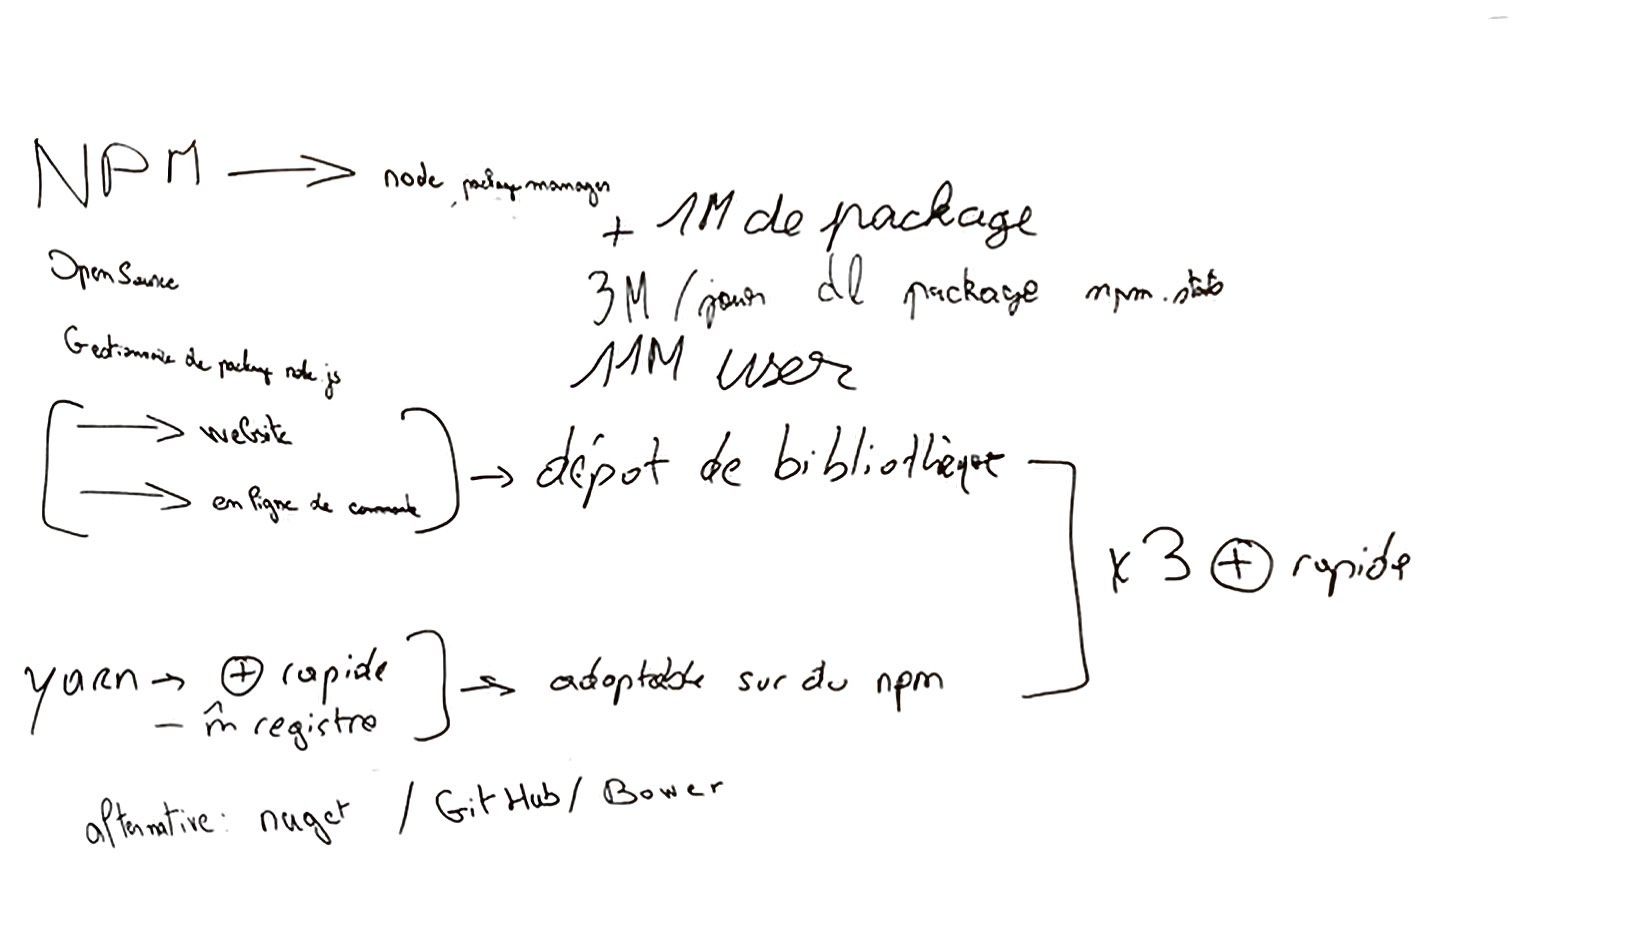 NPM → node package manager
+ 1M de package
Open Source
3M / jour dl package npm.stats
Gestionnaire de package node.js
11M user
→ website
→ en ligne de commande
→ dépot de bibliothèque
x3 ⊕ rapide
yarn → ⊕ rapide
- m̂ registre
→ adaptable sur du npm
alternative: nuget / GitHub / Bower